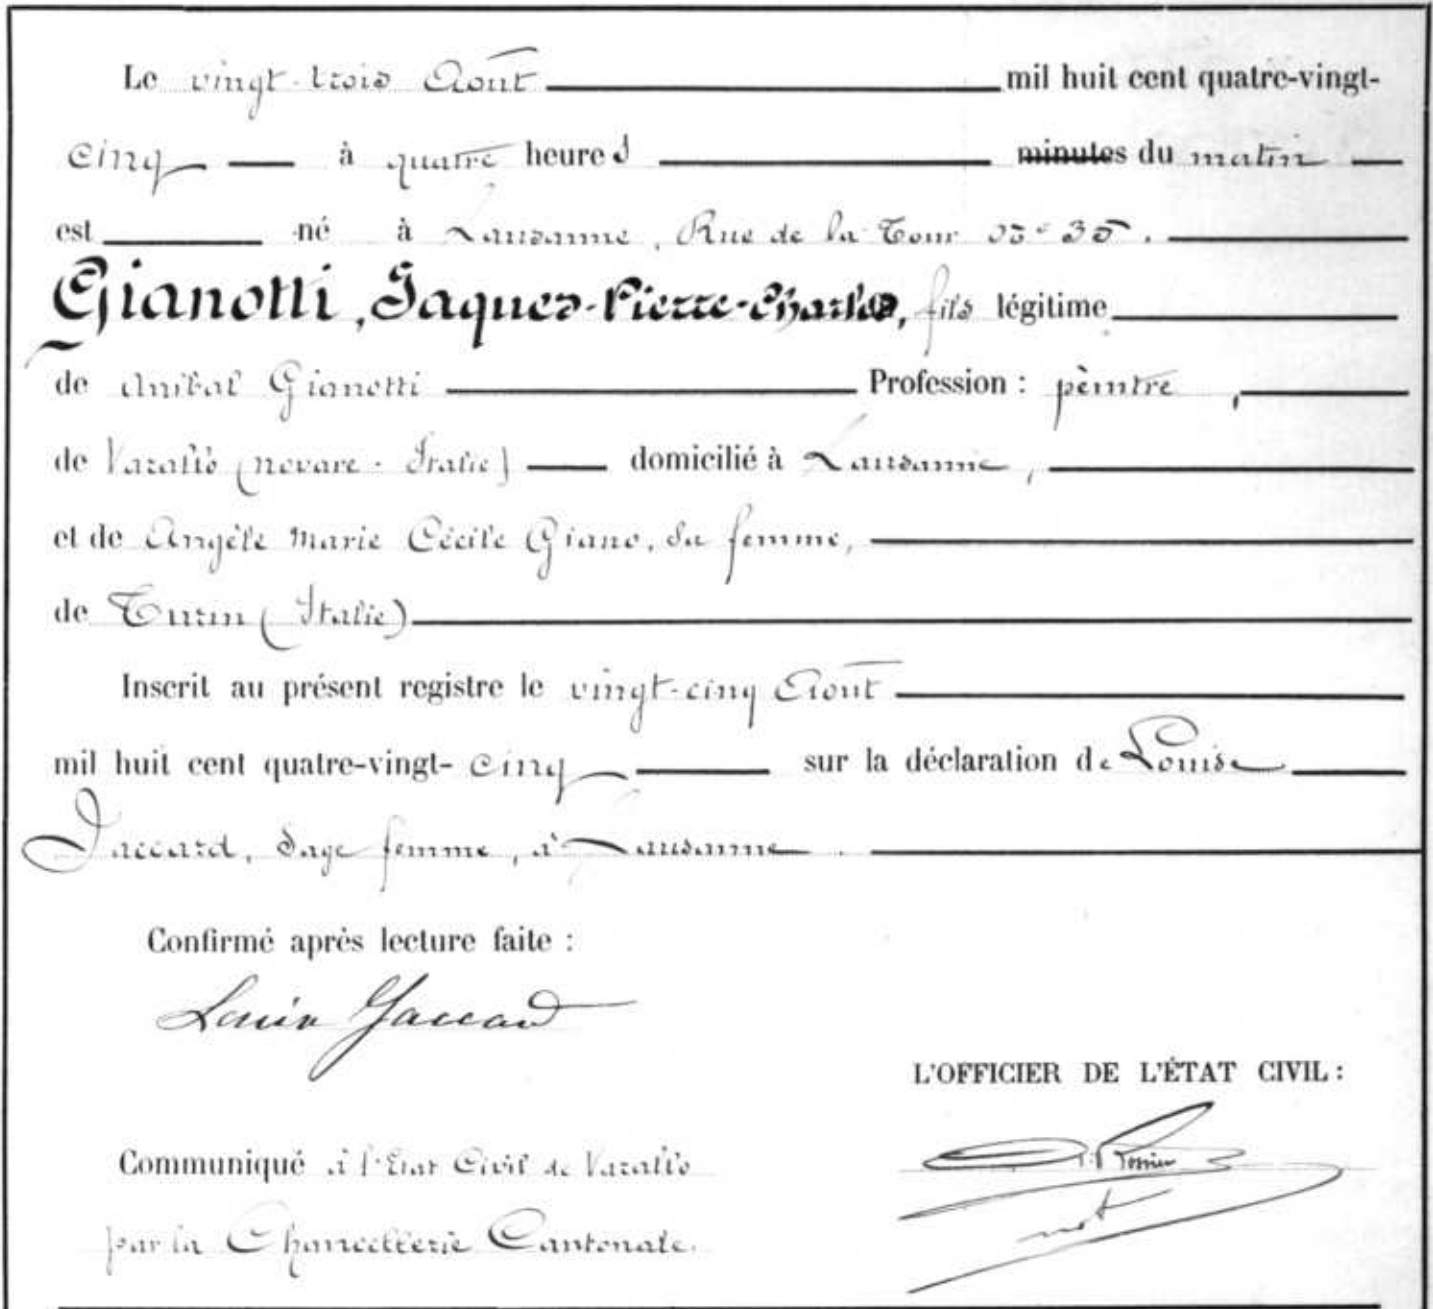 Le vingt-trois Août mil huit cent quatre-vingt-
cinq à quatre heures minutes du matin
est né à Lausanne, Rue de la Tour No 35.
Gianotti, Jaques-Pierre-Charles, fils légitime
de Anibal Gianotti Profession : peintre,
de Varallo (Novare - Italie) domicilié à Lausanne,
et de Angèle Marie Cécile Giano, sa femme,
de Turin (Italie)
Inscrit au présent registre le vingt-cinq Août
mil huit cent quatre-vingt-cinq sur la déclaration de Louise
Jaccard, sage femme, à Lausanne.
Confirmé après lecture faite :
Louise Jaccard
L'OFFICIER DE L'ÉTAT CIVIL :
Communiqué à l'Etat Civil de Varallo
not
par la Chancellerie Cantonale.